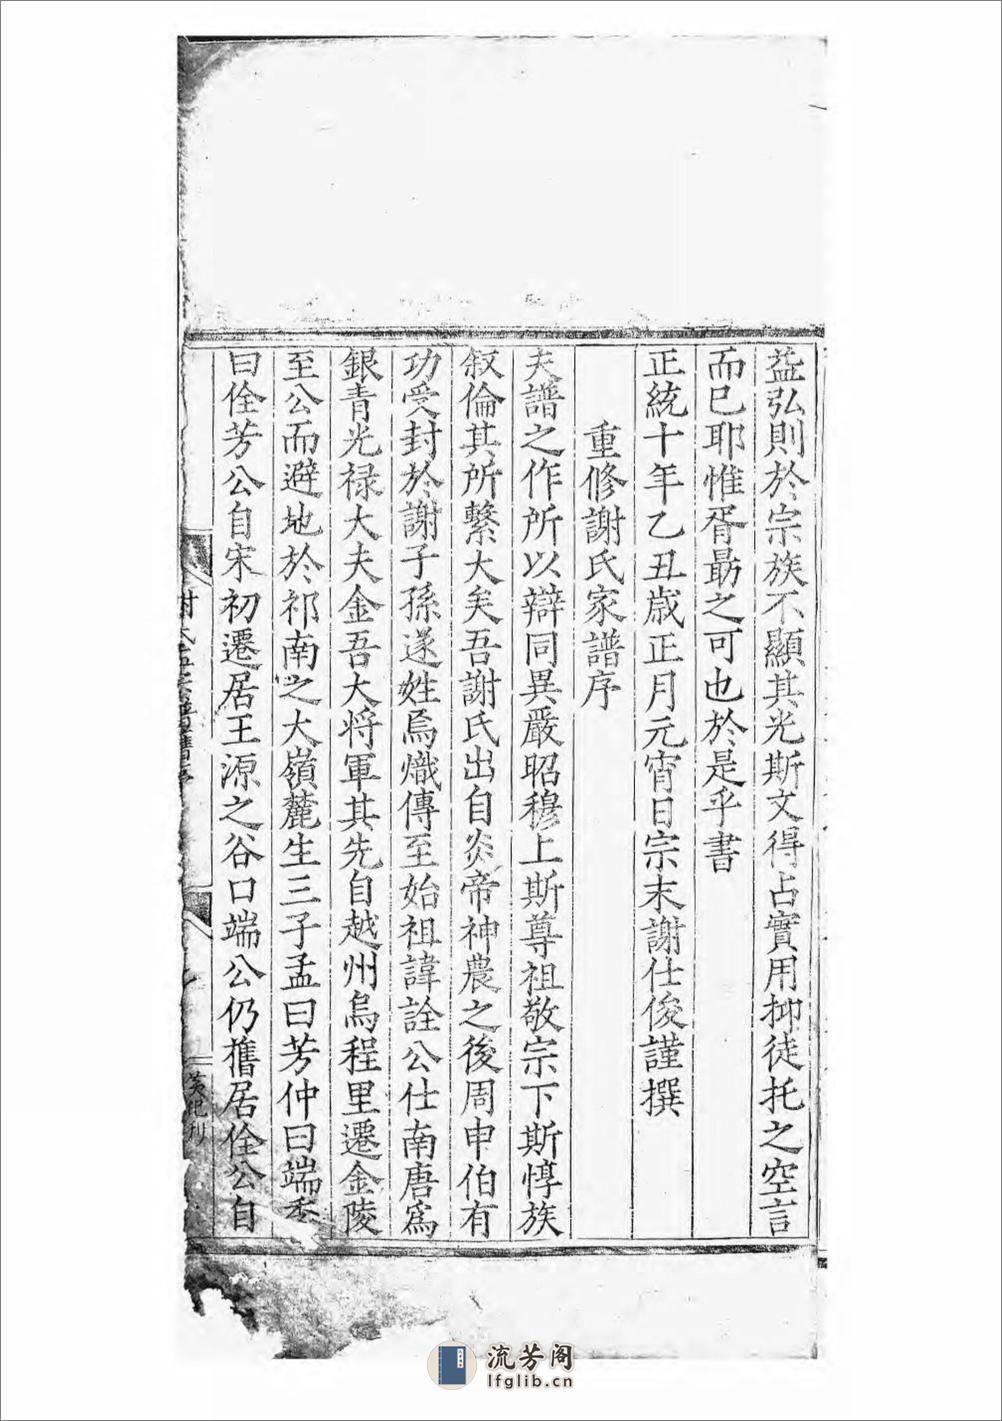 益弘則於宗族不顯其光斯文得占實用抑徒托之空言
而已耶惟胥勗之可也於是乎書
正統十年乙丑歲正月元宵日宗末謝仕俊謹撰
重修謝氏家譜序
夫譜之作所以辯同異嚴昭穆上斯尊祖敬宗下斯惇族
叙倫其所繫大矣吾謝氏出自炎帝神農之後周申伯有
功受封於謝子孫遂姓焉熾傳至始祖諱詮公仕南唐爲
銀青光禄大夫金吾大将軍其先自越州烏程里遷金陵
至公而避地於祁南之大嶺麓生三子孟曰芳仲曰端季
曰佺芳公自宋初遷居王源之谷口端公仍舊居佺公自
黄 刋
流芳阁
lfglib.cn